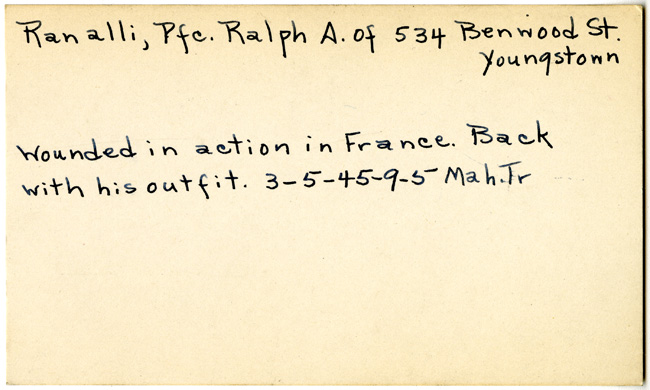 Ranalli, Pfc. Ralph A. of 534 Benwood St.
Youngstown
Wounded in action in France. Back
with his outfit. 3-5-45-9-5 Mah.Tr